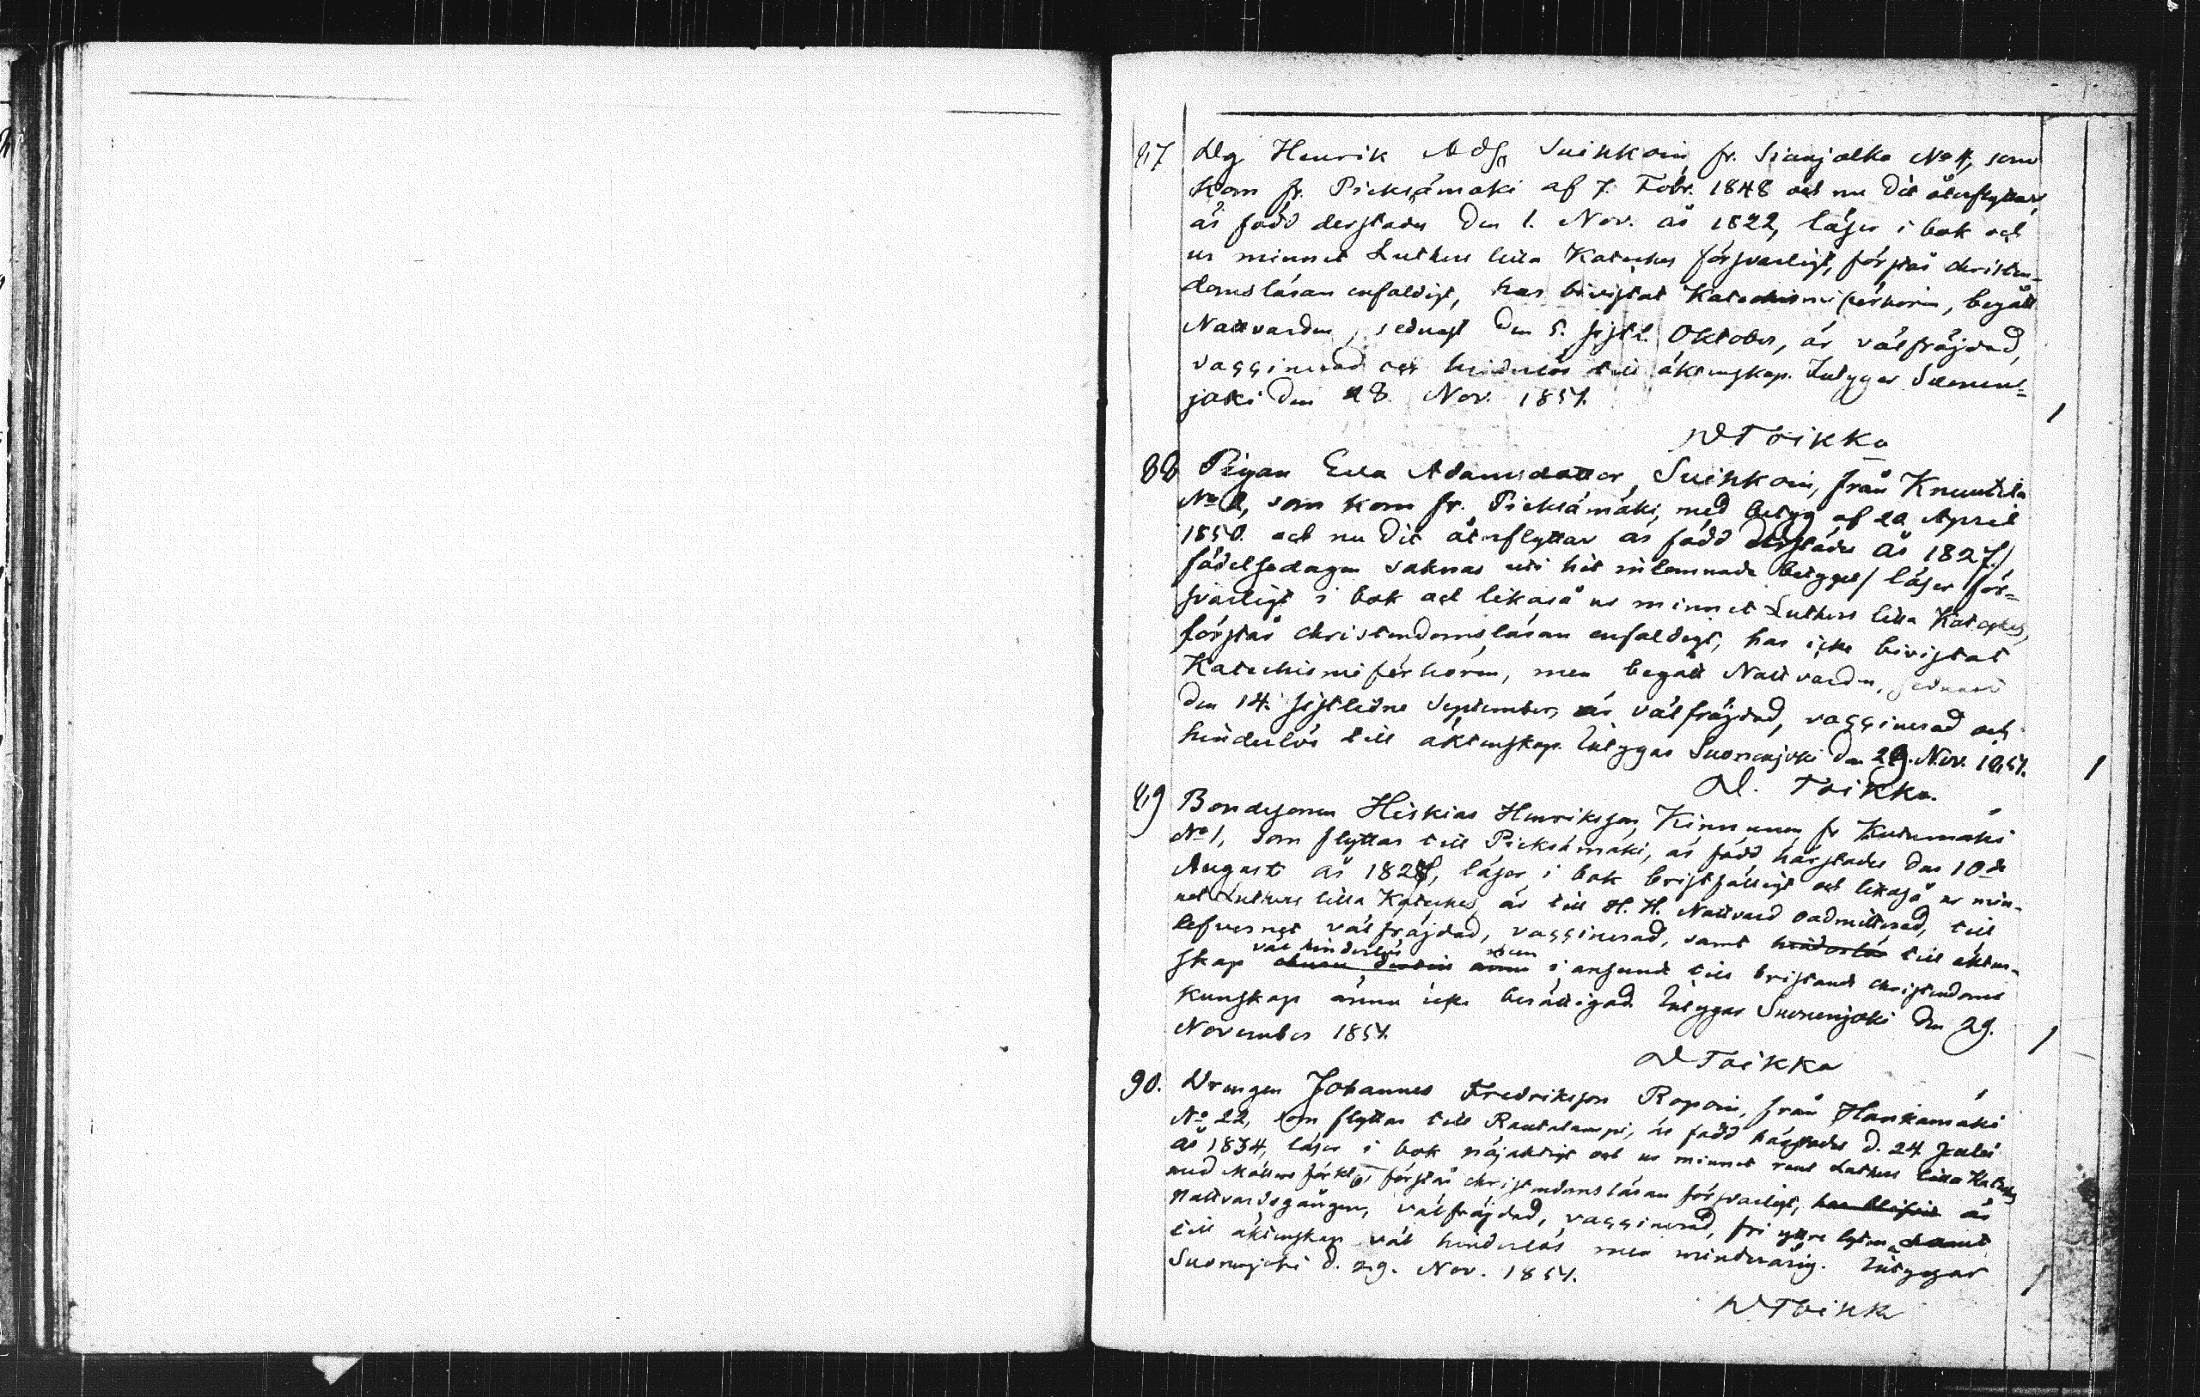 87 Dg Henrik Adsn Suihkoin, fr. Sianjalka No 4, som
kom fr. Pieksämäki af 7. Febr. 1848 och nu dit återflyttar,
är född derstädes den 1. Nov. år 1822, läser i bok och
ur minnet Luthers lilla Kateches försvarligt, förstår christen-
domsläran enfaldigt, har bivistat Katechismiförhören, begått
Nattvarden, sednast den 5. sistl. Oktober, är välfräjdad,
vaccinerad och hinderlös till äktenskap. Intygar Suonen-
joki den 28. Nov. 1851.
D Toikka
88 Pigan Eva Adamsdotter Suihkoin, från Knuutila
No 2, som kom fr. Pieksämäki, med betyg af 20 April
1850. och nu dit återflyttar är född derstädes år 1827./
födelsedagen saknas uti hit inlemnade betyget/ läser för-
svarligt i bok och likaså ur minnet Luthers lilla Kateches,
förstår christendomsläran enfaldigt, har icke bivistat
Katechismiförhören, men begått Nattvarden, sednast
den 14. sistledne September, är välfräjdad, vaccinerad och
hinderlös till äktenskap. Intygar Suonenjoki den 29. Nov. 1851.
D. Toikka.
89 Bondesonen Hiskias Henriksson Kinnunen fr Kutumäki
No 1, som flyttar till Pieksämäki, är född härstädes den 10de
August år 1828, läser i bok bristfälligt och likaså ur min-
net Luthers lilla Kateches, är till H. H. Nattvard oadmitterad, till
lefvernet välfräjdad, vaccinerad, samt hinderlös till äkten-
skap väl hinderlös men i anseende till bristande christendoms
kunskap ännu icke berättigad. Intygar Suonenjoki den 29.
November 1851.
D Toikka
90. Drengen Johannes Fredriksson Ropoin, från Hankamäki
No 22, som flyttar till Rautalampi, är född härstädes d. 24 Juli
år 1834, läser i bok nöjaktigt och ur minnet rent Luthers lilla Kateches
med Möllers förkl., förstår christendomsläran försvarligt, är
Nattvardsgången, välfräjdad, vaccinerad, fri yttre lyten, samt
till äktenskap väl hinderlös men minderårig. Intygar
Suonenjoki d. 29. Nov. 1851.
D Toikka